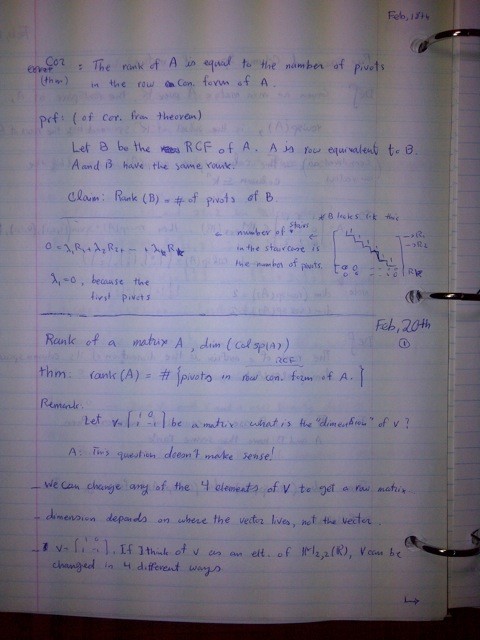 Feb, 18th
Cor : The rank of A is equal to the number of pivots
(thm) in the row Can. form of A.
prf: (of cor. from theorem)
Let B be the RCF of A. A is row equivalent to B.
A and B have the same rank.
Claim: Rank (B) = # of pivots of B.
* B looks like this
← number of stairs
in the staircase is
the number of pivots.
0 = λ₁R₁ + λ₂R₂ + -- + λₖRₖ
→R₁
→R₂
Rₖ
λ₁ = 0, because the
first pivots
Feb, 20th
①
Rank of a matrix A, dim (Colsp(A))
RCF
thm: rank(A) = # {pivots in row can. form of A.}
Remark:
Let v = [1 0 1 -1] be a matrix what is the "dimension" of v?
A: This question doesn't make sense!
- We can change any of the 4 elements of V to get a new matrix
- dimension depends on where the vector lives, not the vector.
- v = [1 0 1 -1]. If I think of v as an elt. of M₂,₂(R), V can be
changed in 4 different ways